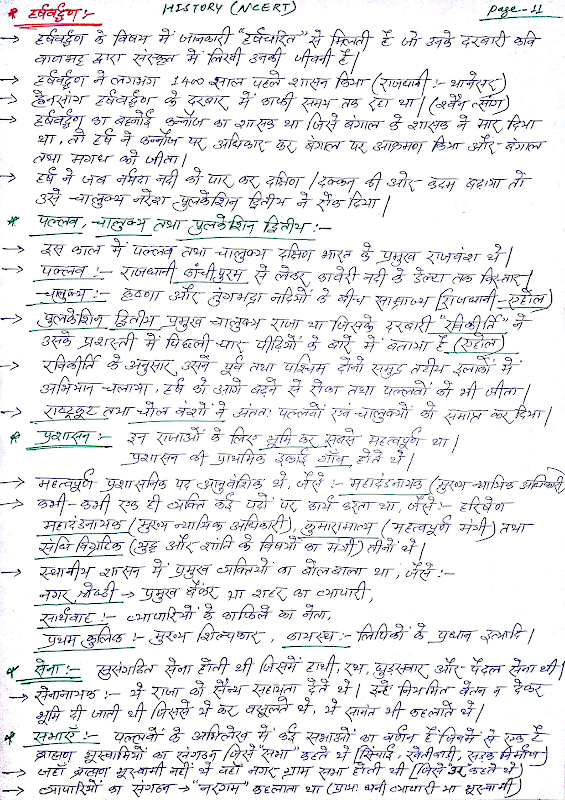 HISTORY (NCERT) page-11
* हर्षवर्द्धन :-
→ हर्षवर्द्धन के विषय में जानकारी "हर्षचरित" से मिलती है जो उनके दरबारी कवि
बाणभट्ट द्वारा संस्कृत में लिखी उनकी जीवनी है |
→ हर्षवर्द्धन ने लगभग 1400 साल पहले शासन किया (राजधानी :- थानेसर)
→ ह्वेनसांग हर्षवर्द्धन के दरबार में काफी समय तक रहा था | (श्वैन त्सांग)
→ हर्षवर्द्धन का बहनोई कन्नौज का शासक था जिसे बंगाल के शासक ने मार दिया
था, तो हर्ष ने कन्नौज पर अधिकार कर बंगाल पर आक्रमण किया और बंगाल
तथा मगध को जीता |
→ हर्ष ने जब नर्मदा नदी को पार कर दक्षिण / दक्कन की ओर कदम बढ़ाया तो
उसे चालुक्य नरेश पुलकेशिन द्वितीय ने रोक दिया |
* पल्लव, चालुक्य तथा पुलकेशिन द्वितीय :-
→ इस काल में पल्लव तथा चालुक्य दक्षिण भारत के प्रमुख राजवंश थे |
→ पल्लव :- राजधानी काँचीपुरम से लेकर कावेरी नदी के डेल्टा तक विस्तार |
चालुक्य :- कृष्णा और तुंगभद्रा नदियों के बीच साम्राज्य (राजधानी - एहोल)
→ पुलकेशिन द्वितीय प्रमुख चालुक्य राजा था जिसके दरबारी "रविकीर्ति" ने
उसके प्रशस्ती में पिछली चार पीढ़ियों के बारे में बताया है (एहोल)
→ रविकीर्ति के अनुसार, उसने पूर्व तथा पश्चिम दोनों समुद्र तटीय इलाकों में
अभियान चलाया, हर्ष को आगे बढ़ने से रोका तथा पल्लवों को भी जीता |
→ राष्ट्रकूट तथा चोल वंशों ने अंततः पल्लवों एवं चालुक्यों को समाप्त कर दिया |
* प्रशासन :- इन राजाओं के लिए भूमि कर सबसे महत्वपूर्ण था |
प्रशासन की प्राथमिक इकाई गाँव होते थे |
→ महत्वपूर्ण प्रशासनिक पद आनुवंशिक थे, जैसे :- महादंडनायक (मुख्य न्यायिक अधिकारी)
→ कभी-कभी एक ही व्यक्ति कई पदों पर कार्य करता था, जैसे :- हरिषेण
महादंडनायक (मुख्य न्यायिक अधिकारी), कुमारामात्य (महत्वपूर्ण मंत्री) तथा
संधि विग्रहिक (युद्ध और शांति के विषयों का मंत्री) तीनों थे |
→ स्थानीय शासन में प्रमुख व्यक्तियों का बोलबाला था, जैसे :-
नगर श्रेष्ठी → प्रमुख बैंकर या शहर का व्यापारी,
सार्थवाह :- व्यापारियों के काफिले का नेता,
प्रथम कुलिक :- मुख्य शिल्पकार, कायस्थ :- लिपिकों के प्रधान इत्यादि |
* सेना :- सुसंगठित सेना होती थी जिसमें हाथी, रथ, घुड़सवार और पैदल सेना थी |
→ सेनानायक :- ये राजा को सैन्य सहायता देते थे | इन्हें नियमित वेतन न देकर
भूमि दी जाती थी जिससे ये कर वसूलते थे, ये सामंत भी कहलाते थे |
* सभाएँ :- पल्लवों के अभिलेख में कई सभाओं का वर्णन है जिनमें से एक है
ब्राह्मण भूस्वामियों का संगठन जिसे "सभा" कहते थे (सिंचाई, खेतीबाड़ी, सड़क निर्माण)
→ जहाँ ब्राह्मण भूस्वामी नहीं थे वहाँ नगर, ग्राम सभा होती थी (जिसे "उर" कहते थे)
→ व्यापारियों का संगठन → "नगरम" कहलाता था (प्रायः धनी व्यापारी या भूस्वामी)